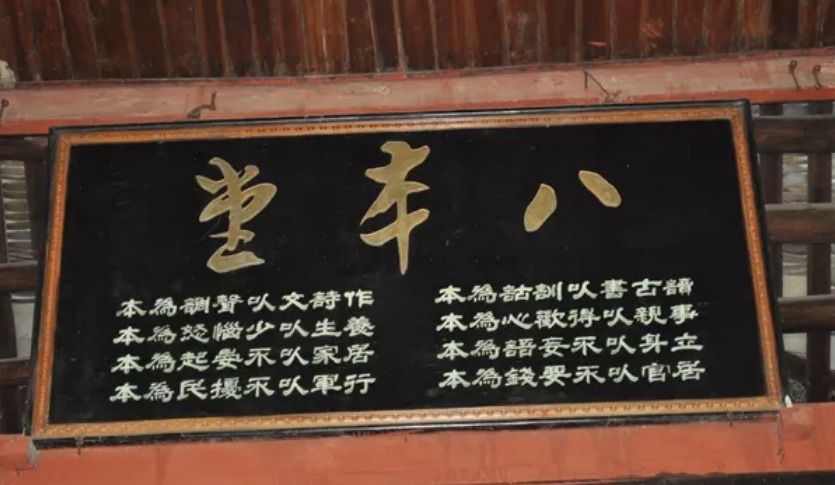 八本堂
讀古書以訓詁為本
事親以得歡心為本
立身以不妄語為本
居官以不要錢為本
作詩文以聲調為本
養生以少惱怒為本
居家以不晏起為本
行軍以不擾民為本